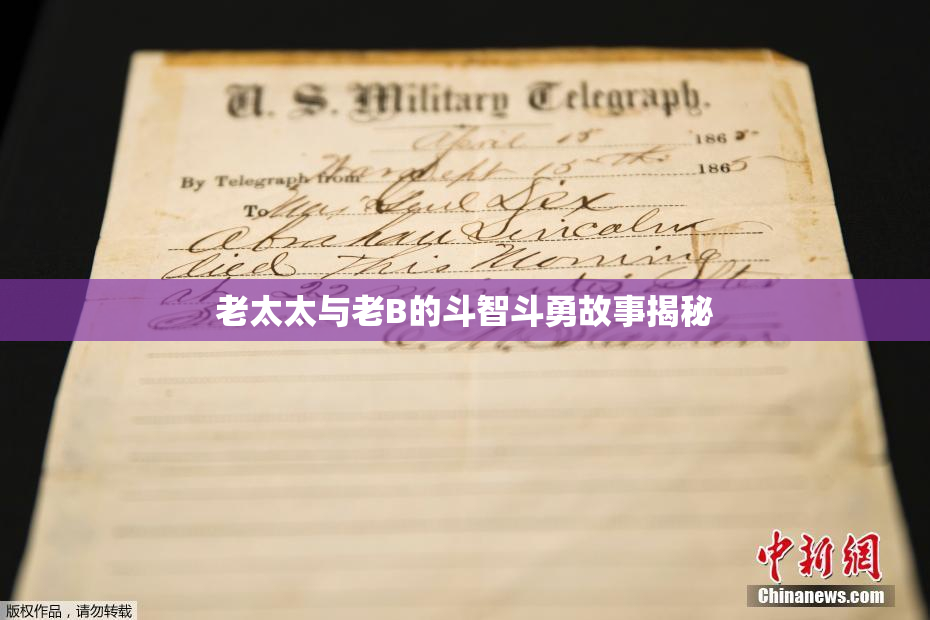 U. S. Military Telegraph.
April 15 1865
By Telegraph from War Dept 15th 1865
To Maj Genl Dix
Abraham Lincoln
died This Morning
at 22 minutes after
老太太与老B的斗智斗勇故事揭秘
E. M. Stanton
中新网
Chinanews.com
版权作品，请勿转载